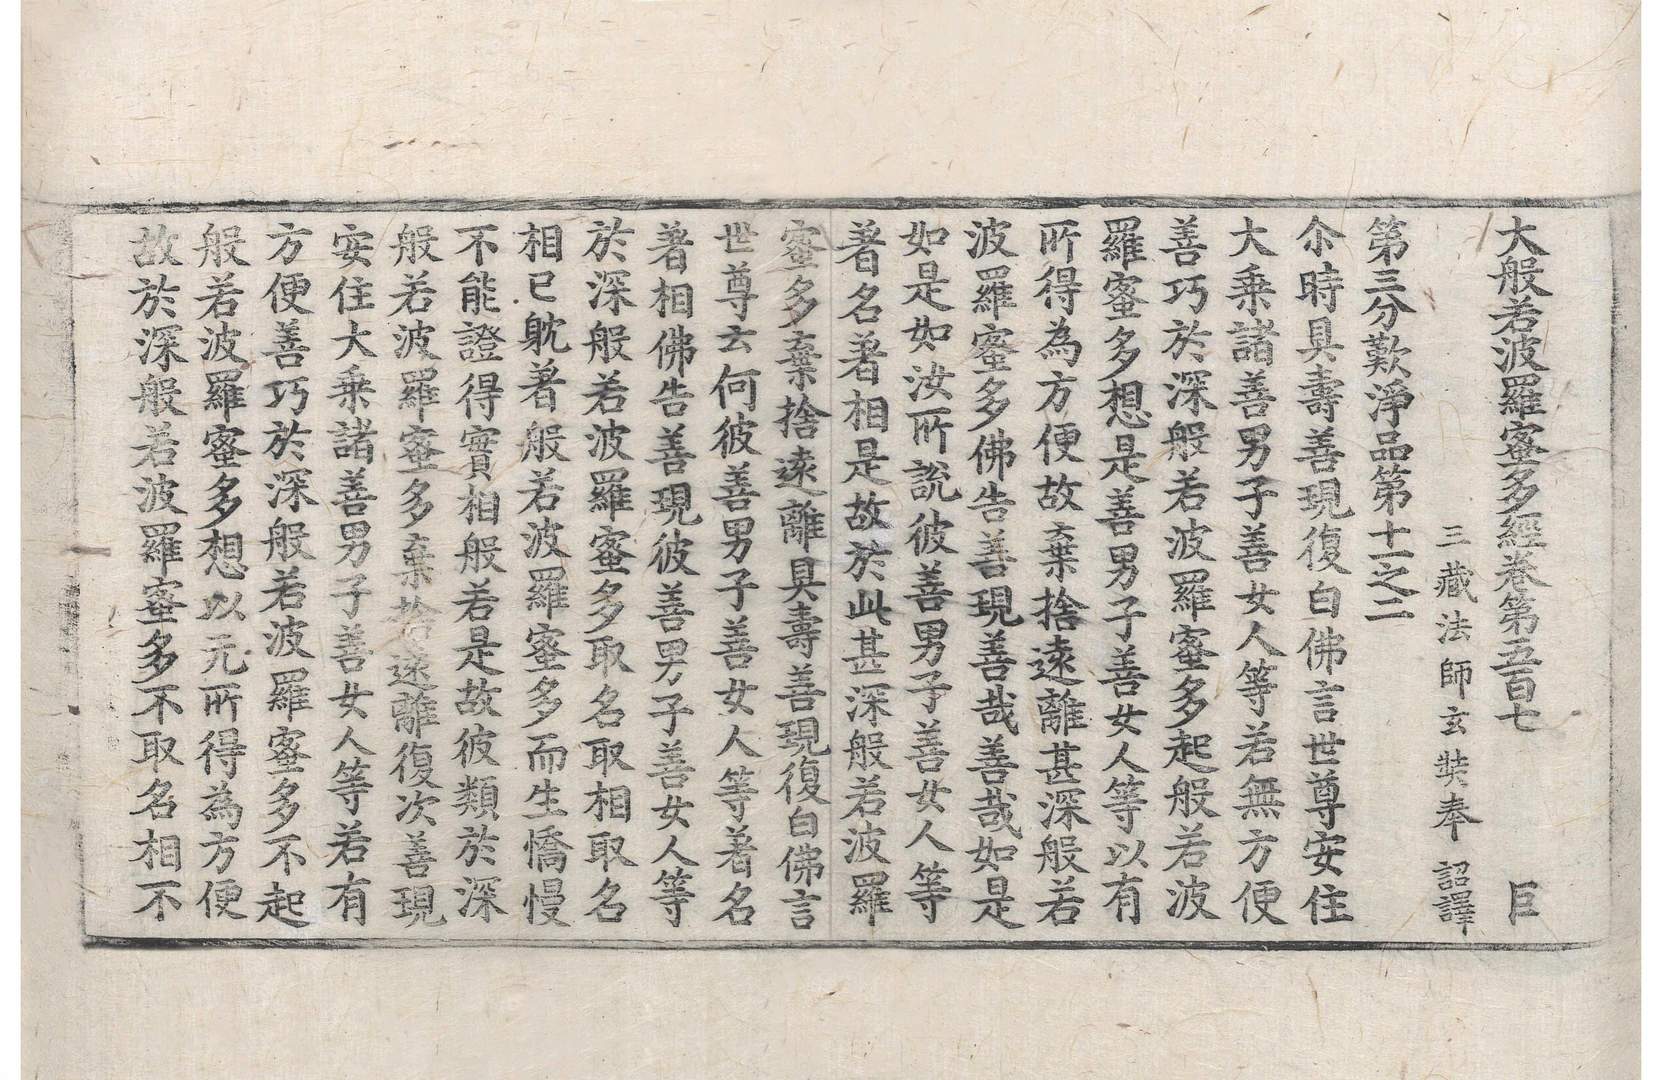 大般若波羅蜜多經卷第五百七 巨
三藏法師玄奘奉 詔譯
第三分歎淨品第十一之二
尒時具壽善現復白佛言世尊安住
大乘諸善男子善女人等若無方便
善巧於深般若波羅蜜多起般若波
羅蜜多想是善男子善女人等以有
所得為方便故棄捨遠離甚深般若
波羅蜜多佛告善現善哉善哉如是
如是如汝所說彼善男子善女人等
著名著相是故於此甚深般若波羅
蜜多棄捨遠離具壽善現復白佛言
世尊云何彼善男子善女人等著名
著相佛告善現彼善男子善女人等
於深般若波羅蜜多取名取相取名
相已躭著般若波羅蜜多而生憍慢
不能證得實相般若是故彼類於深
般若波羅蜜多棄捨遠離復次善現
安住大乘諸善男子善女人等若有
方便善巧於深般若波羅蜜多不起
般若波羅蜜多想以无所得為方便
故於深般若波羅蜜多不取名相不